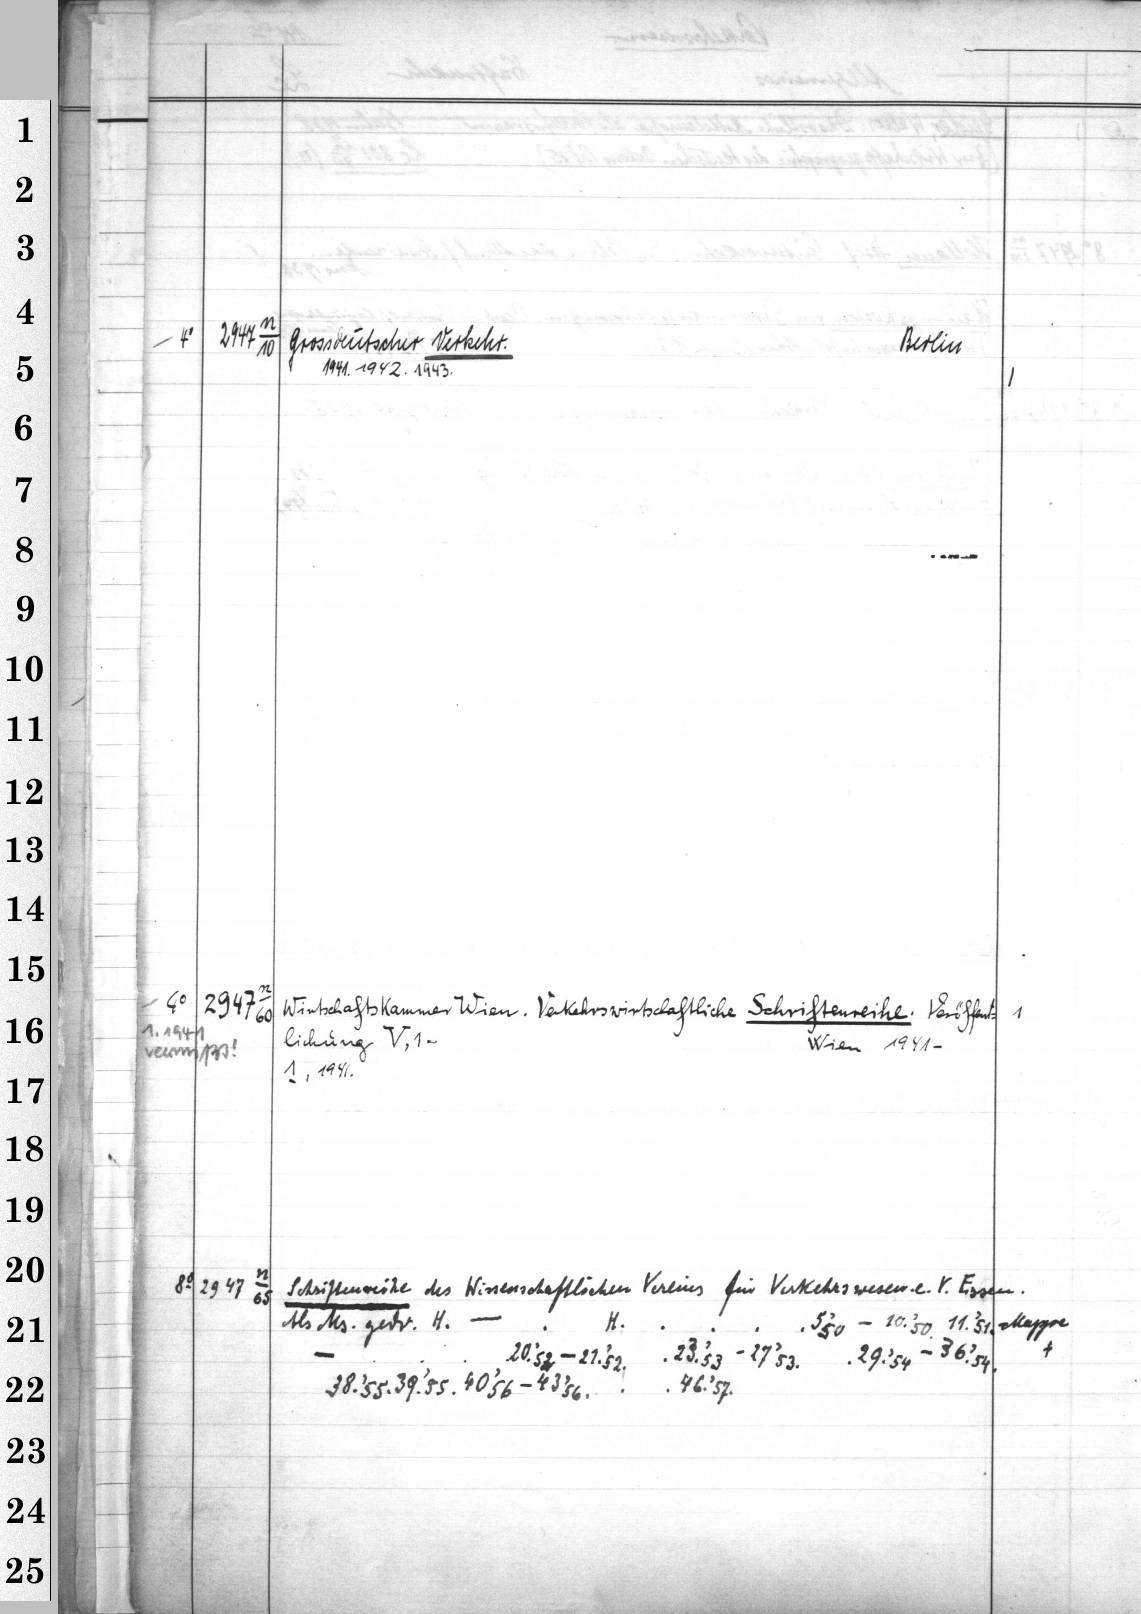 1
2
3
4
– 4° 2947 n/10 Grossdeutscher Verkehr. Berlin
5
1941. 1942. 1943. 1
6
7
8
9
10
11
12
13
14
15
– 4° 2947 n/60 Wirtschaftskammer Wien. Verkehrswirtschaftliche Schriftenreihe. Veröffent- 1
16
1. 1941 lichung V, 1- Wien 1941-
vermißt!
1, 1941.
17
18
19
20
8° 2947 n/65 Schriftenreihe des Wissenschaftlichen Vereins für Verkehrswesen e. V. Essen.
21
Als Ms. gedr. H. — . H. . . . . 5.'50 – 10.'50. 11.'51. Mappe
— . . . 20.'52 – 21.'52. . 23.'53 – 27.'53. . 29.'54 – 36.'54. +
22
38.'55. 39.'55. 40.'56 – 43.'56. . . 46.'57.
23
24
25